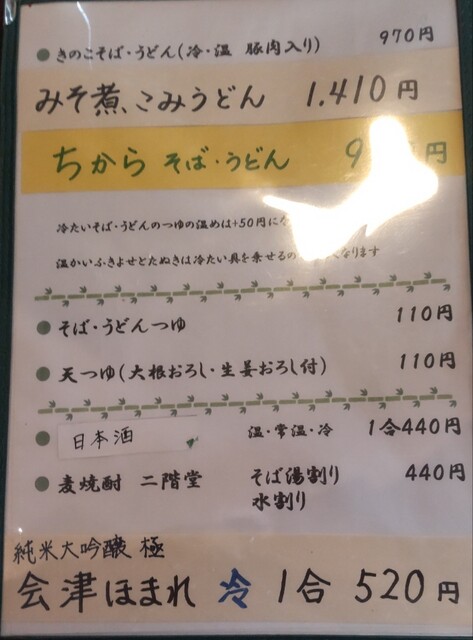 きのこそば・うどん(冷・温 豚肉入り) 970円
みそ煮こみうどん 1.410円
ちから そば・うどん 9 円
冷たいそば・うどんのつゆの温めは+50円に
温かいふきよせとたぬきは冷たい具を乗せるの なります
そば・うどんつゆ 110円
天つゆ(大根おろし・生姜おろし付) 110円
日本酒 温・常温・冷 1合440円
麦焼酎 二階堂 そば湯割り 440円
水割り
純米大吟醸 極
会津ほまれ 冷 1合 520円